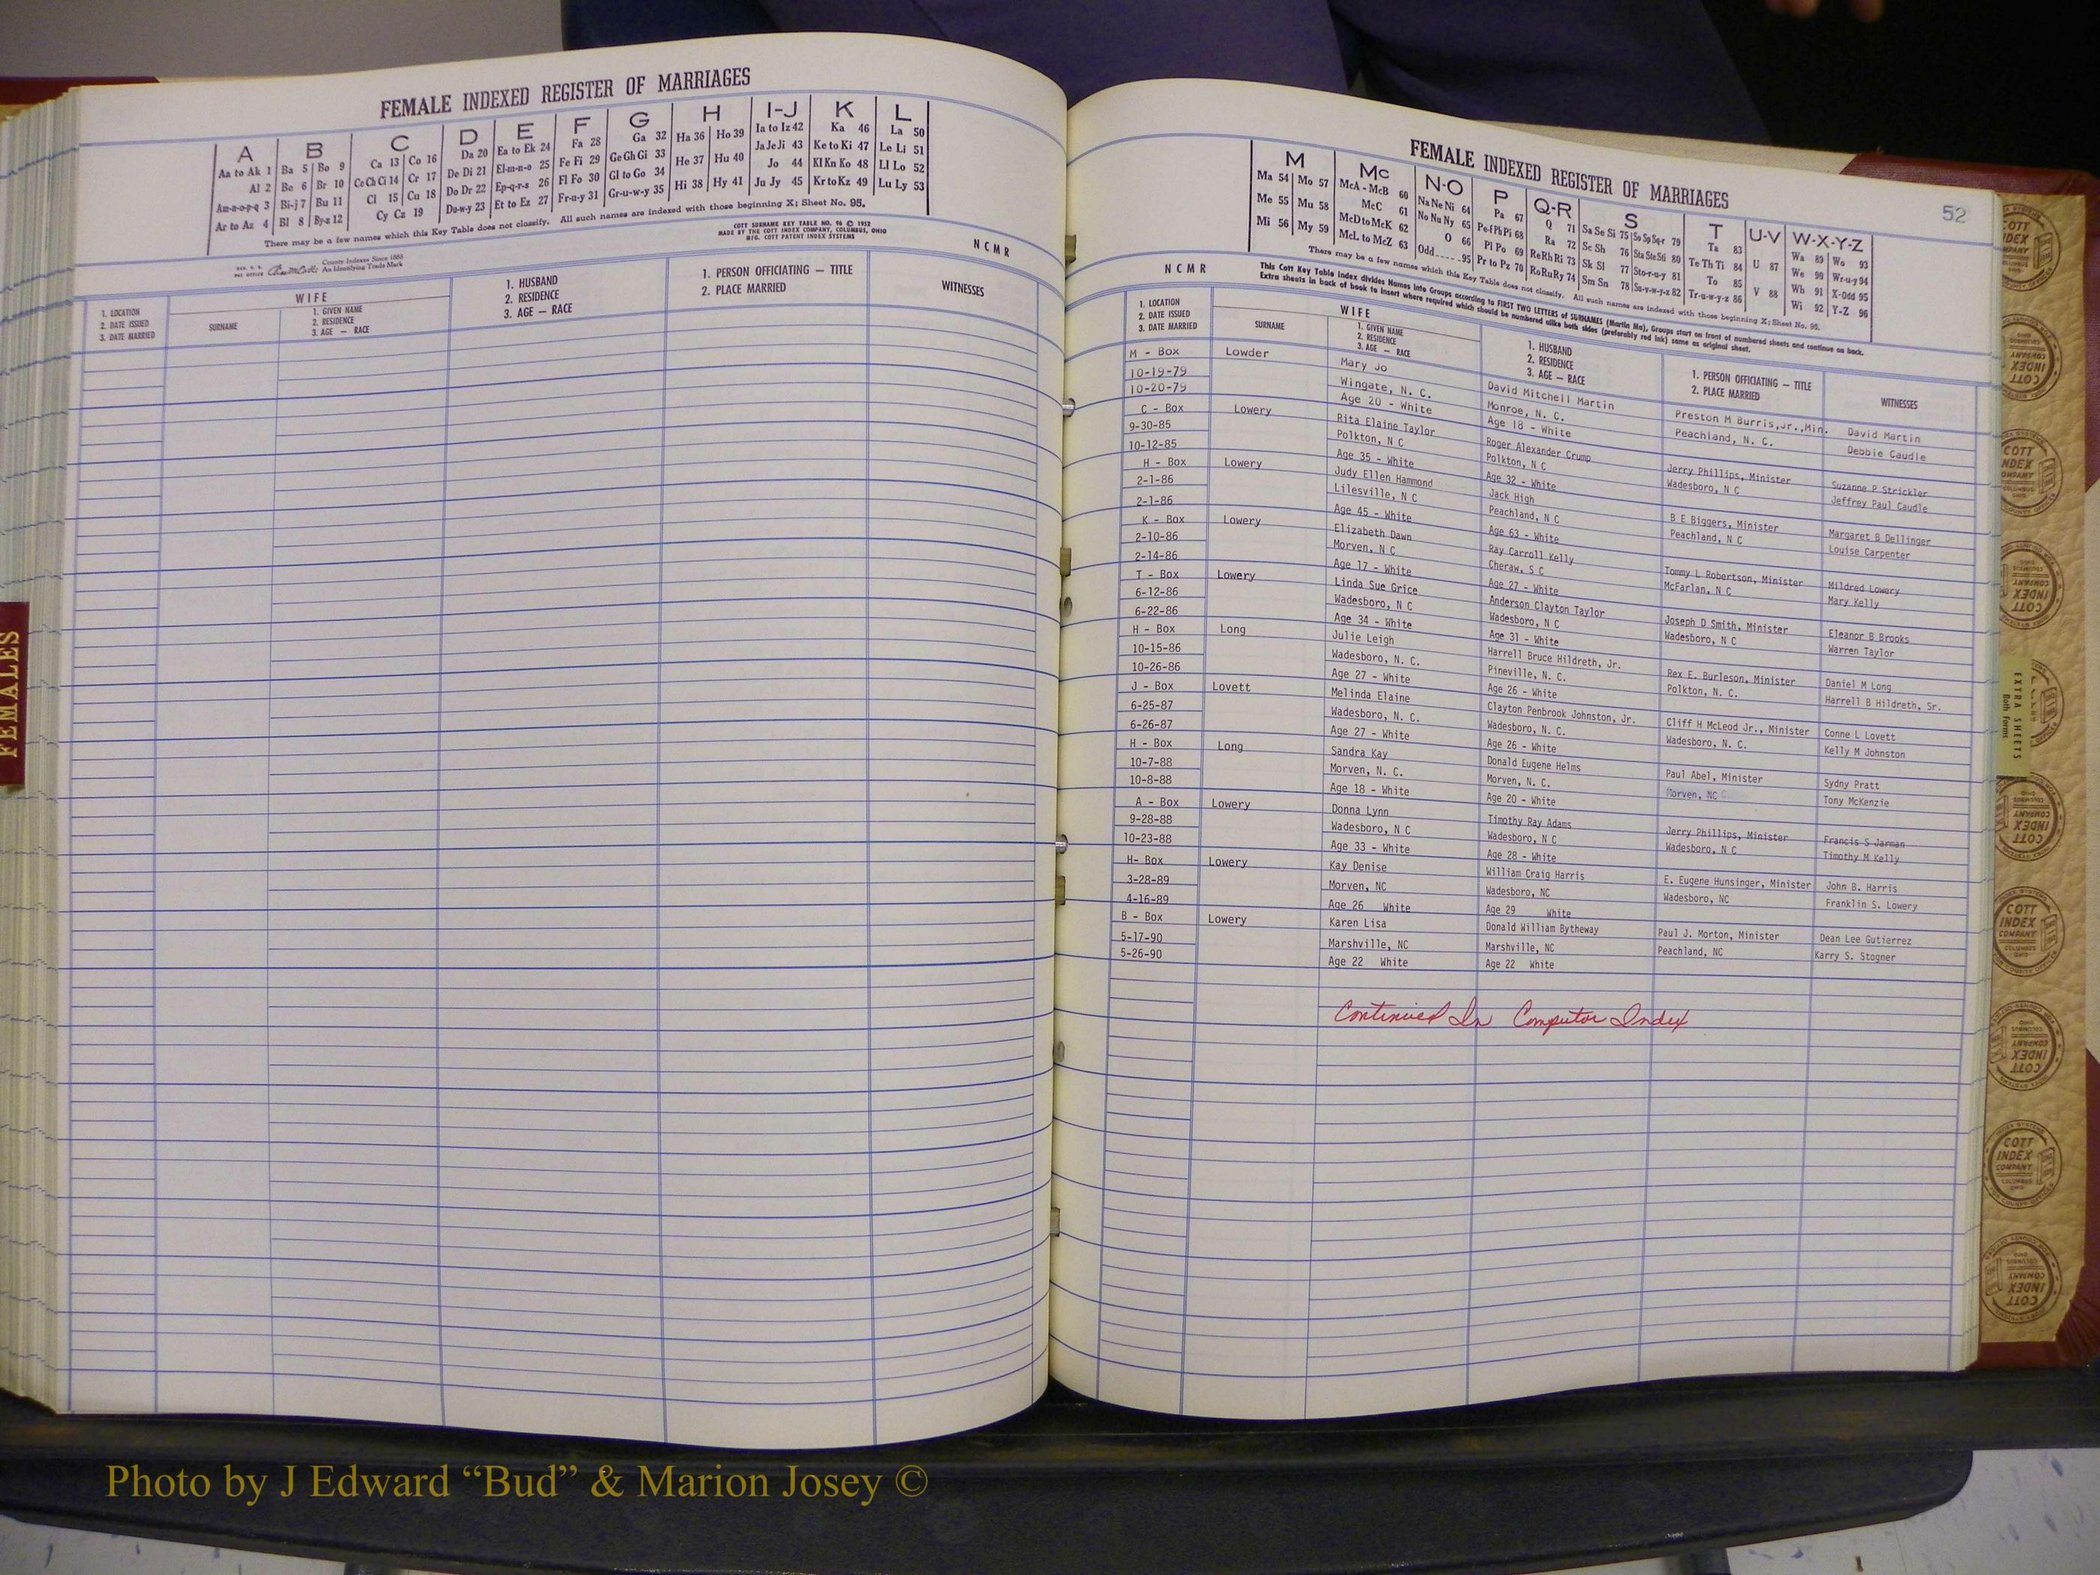 FEMALE INDEXED REGISTER OF MARRIAGES
A B C D E F G H I-J K L
Aa to Ak 1 Ba 5 Bo 9 Ca 13 Co 16 Da 20 Ea to Ek 24 Fa 28 Ga 32 Ha 36 Ho 39 Ia to Iz 42 Ka 46 La 50
Al 2 Be 6 Br 10 Ce Ch Ci 14 Cr 17 De Di 21 El-m-n-o 25 Fe Fi 29 Ge Gh Gi 33 He 37 Hu 40 Ja Je Ji 43 Ke to Ki 47 Le Li 51
Am-n-o-p-q 3 Bi-j 7 Bu 11 Cl 15 Cu 18 Do Dr 22 Ep-q-r-s 26 Fl Fo 30 Gl to Go 34 Hi 38 Hy 41 Jo 44 Kl Kn Ko 48 Ll Lo 52
Ar to Az 4 Bl 8 By-z 12 Cy Cz 19 Du-w-y 23 Et to Ez 27 Fr-u-y 31 Gr-u-w-y 35 Ju Jy 45 Kr to Kz 49 Lu Ly 53
There may be a few names which this Key Table does not classify. All such names are indexed with those beginning X; Sheet No. 95.
COTT SURNAME KEY TABLE NO. 96 © 1952
MADE BY THE COTT INDEX COMPANY, COLUMBUS, OHIO
MFG. COTT PATENT INDEX SYSTEMS
County Indexes Since 1888
An Identifying Trade Mark
N C M R
1. LOCATION
2. DATE ISSUED
3. DATE MARRIED
WIFE
SURNAME
1. GIVEN NAME
2. RESIDENCE
3. AGE — RACE
1. HUSBAND
2. RESIDENCE
3. AGE — RACE
1. PERSON OFFICIATING — TITLE
2. PLACE MARRIED
WITNESSES
FEMALES
FEMALE INDEXED REGISTER OF MARRIAGES
52
M Mc N-O P Q-R S T U-V W-X-Y-Z
Ma 54 Mo 57 McA - McB 60 Na Ne Ni 64 Pa 67 Q 71 Sa Se Si 75 So Sp Sq-r 79 Ta 83 U 87 Wa 89 Wo 93
Me 55 Mu 58 McC 61 No Nu Ny 65 Pe-f Ph Pi 68 Ra 72 Sc Sh 76 Sta Ste Sti 80 Te Th Ti 84 V 88 We 90 Wr-u-y 94
Mi 56 My 59 McD to McK 62 O 66 Pl Po 69 Re Rh Ri 73 Sk Sl 77 Sto-r-u-y 81 To 85 Wh 91 X-Odd 95
McL to McZ 63 Odd-----95 Pr to Pz 70 Ro Ru Ry 74 Sm Sn 78 Su-v-w-y-z 82 Tr-u-w-y-z 86 Wi 92 Y-Z 96
There may be a few names which this Key Table does not classify. All such names are indexed with those beginning X; Sheet No. 95.
N C M R
This Cott Key Table Index divides Names into Groups according to FIRST TWO LETTERS of SURNAMES (Martin Ma), Groups start on front of numbered sheets and continue on back.
Extra sheets in back of book to insert where required which should be numbered alike both sides (preferably red ink) same as original sheet.
1. LOCATION
2. DATE ISSUED
3. DATE MARRIED
WIFE
SURNAME
1. GIVEN NAME
2. RESIDENCE
3. AGE — RACE
1. HUSBAND
2. RESIDENCE
3. AGE — RACE
1. PERSON OFFICIATING — TITLE
2. PLACE MARRIED
WITNESSES
M - Box Lowder Mary Jo David Mitchell Martin Preston M Burris,Jr.,Min. David Martin
10-19-79 Wingate, N. C. Monroe, N. C. Peachland, N. C. Debbie Caudle
10-20-79 Age 20 - White Age 18 - White
C - Box Lowery Rita Elaine Taylor Roger Alexander Crump Jerry Phillips, Minister Suzanne P Strickler
9-30-85 Polkton, N C Polkton, N C Wadesboro, N C Jeffrey Paul Caudle
10-12-85 Age 35 - White Age 32 - White
H - Box Lowery Judy Ellen Hammond Jack High B E Biggers, Minister Margaret B Dellinger
2-1-86 Lilesville, N C Peachland, N C Peachland, N C Louise Carpenter
2-1-86 Age 45 - White Age 63 - White
K - Box Lowery Elizabeth Dawn Ray Carroll Kelly Tommy L Robertson, Minister Mildred Lowery
2-10-86 Morven, N C Cheraw, S C McFarlan, N C Mary Kelly
2-14-86 Age 17 - White Age 27 - White
T - Box Lowery Linda Sue Grice Anderson Clayton Taylor Joseph D Smith, Minister Eleanor B Brooks
6-12-86 Wadesboro, N C Wadesboro, N C Wadesboro, N C Warren Taylor
6-22-86 Age 34 - White Age 31 - White
H - Box Long Julie Leigh Harrell Bruce Hildreth, Jr. Rex E. Burleson, Minister Daniel M Long
10-15-86 Wadesboro, N. C. Pineville, N. C. Polkton, N. C. Harrell B Hildreth, Sr.
10-26-86 Age 27 - White Age 26 - White
J - Box Lovett Melinda Elaine Clayton Penbrook Johnston, Jr. Cliff H McLeod Jr., Minister Conne L Lovett
6-25-87 Wadesboro, N. C. Wadesboro, N. C. Wadesboro, N. C. Kelly M Johnston
6-26-87 Age 27 - White Age 26 - White
H - Box Long Sandra Kay Donald Eugene Helms Paul Abel, Minister Sydny Pratt
10-7-88 Morven, N. C. Morven, N. C. Morven, NC Tony McKenzie
10-8-88 Age 18 - White Age 20 - White
A - Box Lowery Donna Lynn Timothy Ray Adams Jerry Phillips, Minister Francis S Jarman
9-28-88 Wadesboro, N C Wadesboro, N C Wadesboro, N C Timothy M Kelly
10-23-88 Age 33 - White Age 28 - White
H- Box Lowery Kay Denise William Craig Harris E. Eugene Hunsinger, Minister John B. Harris
3-28-89 Morven, NC Wadesboro, NC Wadesboro, NC Franklin S. Lowery
4-16-89 Age 26 White Age 29 White
B - Box Lowery Karen Lisa Donald William Bytheway Paul J. Morton, Minister Dean Lee Gutierrez
5-17-90 Marshville, NC Marshville, NC Peachland, NC Karry S. Stogner
5-26-90 Age 22 White Age 22 White
Continued In Computor Index
EXTRA SHEETS
Both Forms
COTT INDEX COMPANY COLUMBUS OHIO
Photo by J Edward “Bud” & Marion Josey ©